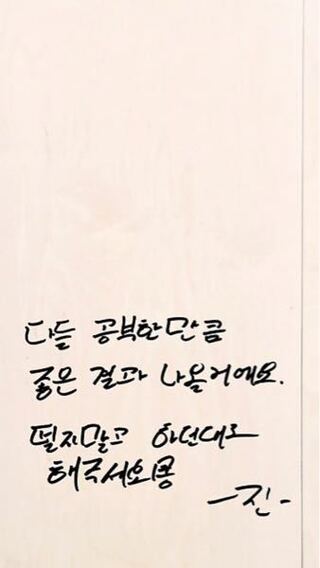 다들 공부한만큼
좋은 결과 나올거에요.
떨지말고 하던대로
해주세요용
-진-